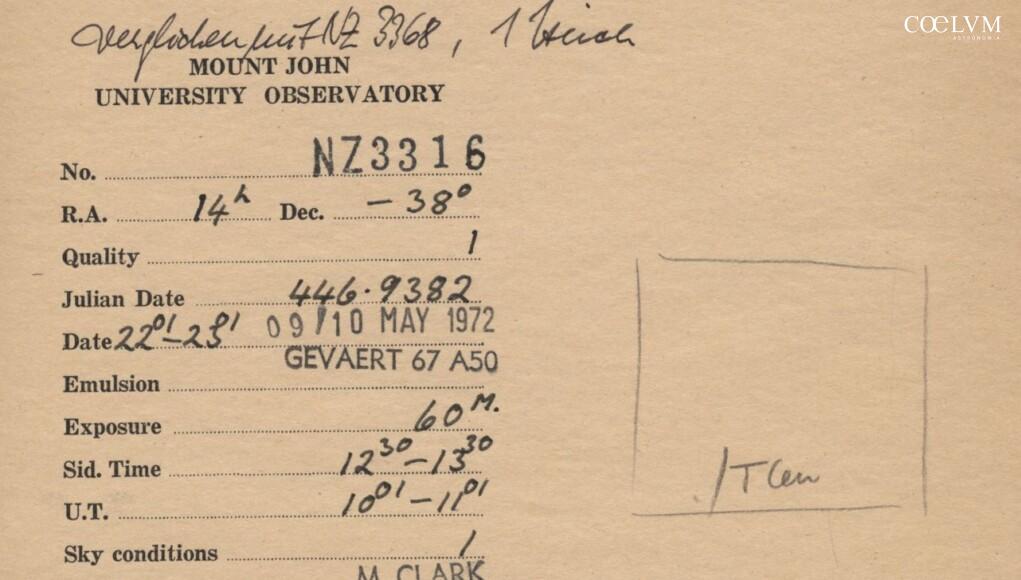 verglichen mit NZ 3368, 1 Strich
COELVM
ASTRONOMIA
MOUNT JOHN
UNIVERSITY OBSERVATORY
No. NZ3316
R.A. 14h Dec. - 38°
Quality 1
Julian Date 446.9382
Date 22 01 - 23 01 09/10 MAY 1972
GEVAERT 67 A50
Emulsion
Exposure 60 M.
Sid. Time 12 30 - 13 30
U.T. 10 01 - 11 01
Sky conditions 1
M. CLARK
T Cen